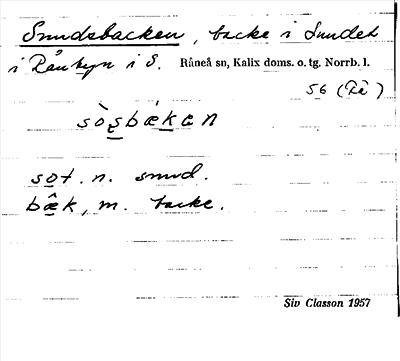 Smedsbacken, backe i Sundet
i Rånbyn i S. Råneå sn, Kalix doms. o. tg. Norrb. l.
56 (Få)
sòsbǽkɐn
sot. n. smed.
bæ̂k, m. backe.
Siv Classon 1957